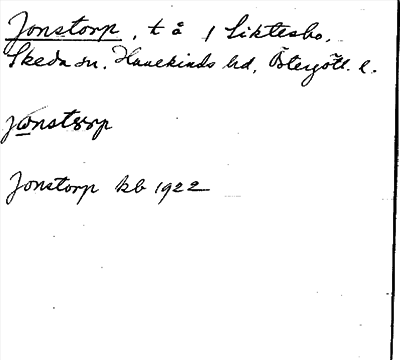 Jonstorp, t å / Siktesbo,
Skeda sn. Hanekinds hd, Östergötl. l.
jωnstɷrp
Jonstorp kb 1922